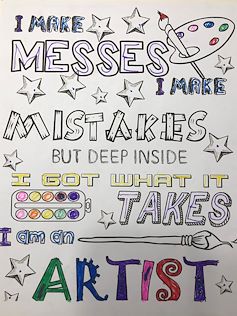 I MAKE
MESSES
I MAKE
MISTAKES
BUT DEEP INSIDE
I GOT WHAT IT
TAKES
I am an
ARTIST